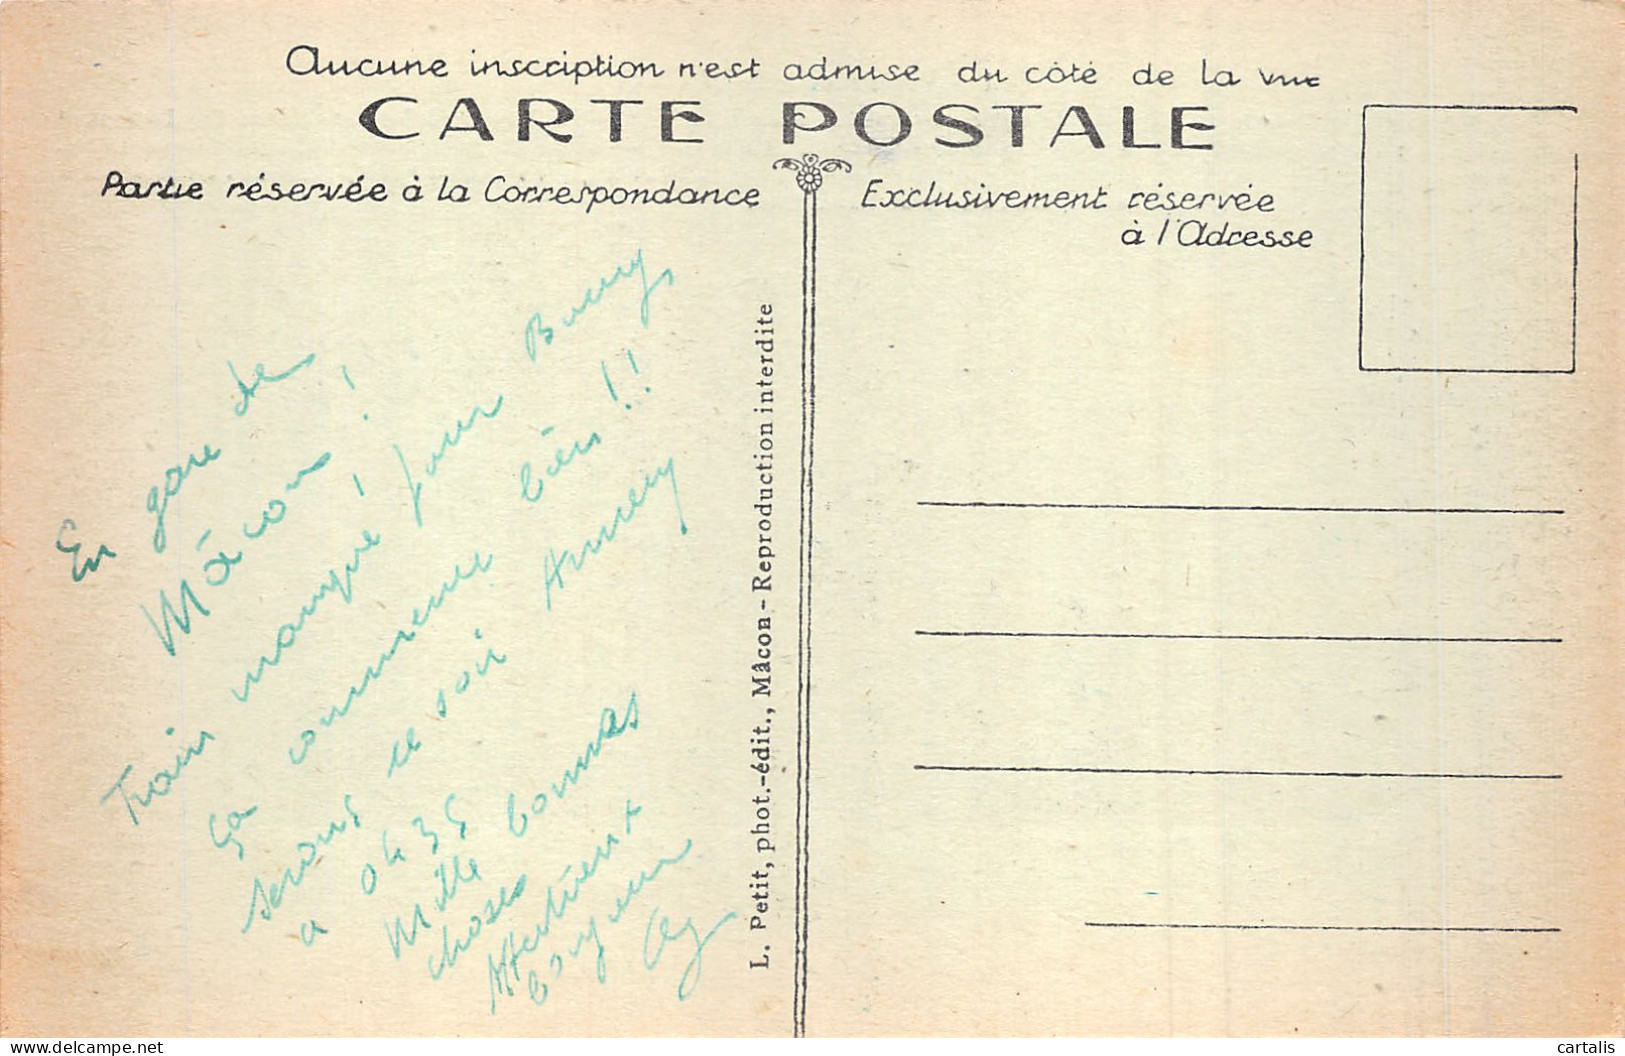 Aucune inscription n'est admise du côté de la vue
CARTE POSTALE
Partie réservée à la Correspondance
Exclusivement réservée
à l'Adresse
En gare de
Mâcon !
Train manqué ! pour Bourg,
ça commence bien !!
serons ce soir Annecy
a 0h35
Mille bonnes
choses
Affectueux
L. Petit, phot.-édit., Mâcon - Reproduction interdite
cartalis
delcampe.net